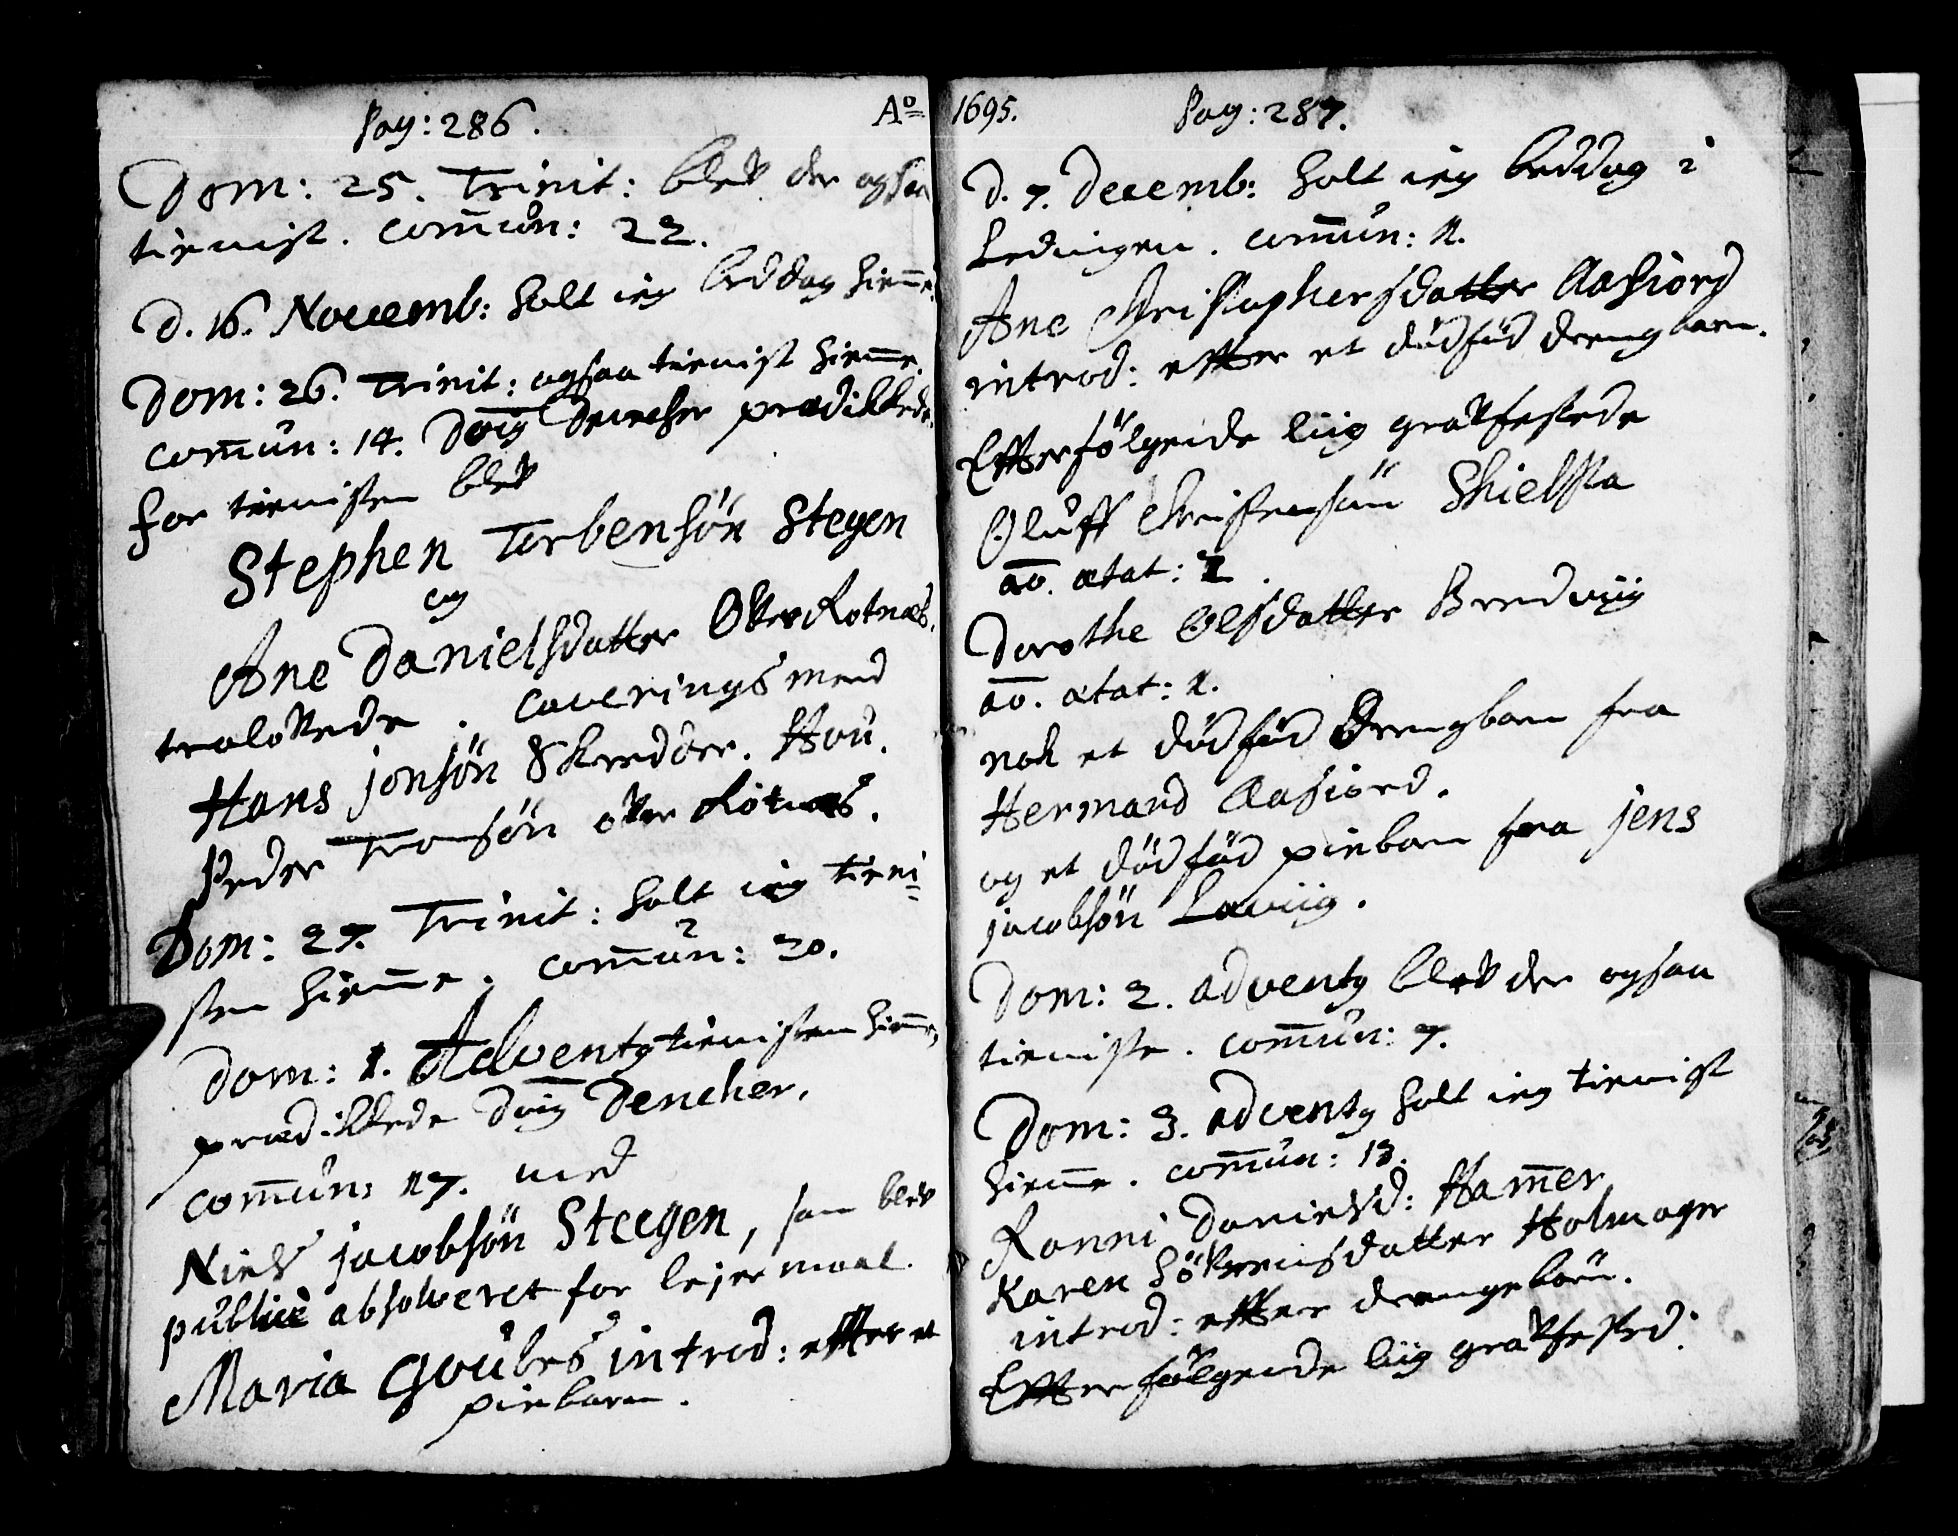 Pag: 286. Ao
Dom: 25. Trinit: blev der ogsaa
tienist. Com̄un: 22.
D. 16. Novemb: holt ieg beddag hiem̄e.
Dom: 26. Trinit: ogsaa tienist hiem̄e.
Com̄un: 14. Dn̄g Dencher prædikkede.
for tienisten blev
Stephen Torbensön Stegen
og
Ane Danielsdatter Over Rotnæs.
trolovede. Caverings mend
Hans Jonsön Skredder. Hou.
Peder Tronsön over Rotnæs.
Dom: 27. Trinit: holt ieg tieni=
sten hiem̄e. Com̄un: 20.
Dom: 1. Adventg tienisten hiem̄e,
prædikkede Dn̄g Dencher.
Com̄un: 17. med
Niels Jacobsön Steegen, som blev
publicè absolveret for lejermaal.
Maria Goubes introd: etter et
piebarn.
1695. Pag: 287.
D. 7. Decemb: holt ieg beddag i
Ledingen. Com̄un: 11.
Ane Christophersdatter Aafiord
introd: etter et dödföd drengbarn.
Etterfölgende liig gravfestede
Oluff Christensön Skielsta
ao. ætat: 1.
Dorothe Olsdatter Bredviig
ao. ætat: 1.
nok et dödföd Drengbarn fra
Hermand Aafiord.
og et dödföd piebarn fra Jens
Jacobsön Laviig.
Dom: 2. Adventg blev der ogsaa
tieniste. Com̄un: 7.
Dom: 3. Adventg holt ieg tienist
hiem̄e. Com̄un: 13.
Ronni Danielsd: Ham̄er
Karen Sörrensdatter Holmager
introd: etter drengebörn.
Etterfölgende liig gravfested: